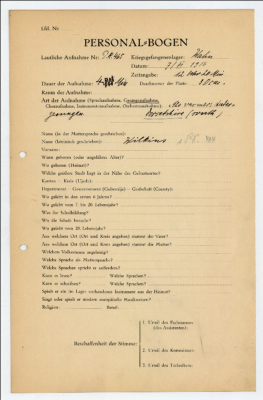 Lfd. Nr.
PERSONAL-BOGEN
Lautliche Aufnahme Nr.: PK 465 Kriegsgefangenenlager: Hahn
Datum:
Zeitangabe: 12 Uhr 20 Min
Dauer der Aufnahme: Durchmesser der Platte:
Raum der Aufnahme:
Art der Aufnahme (Sprechaufnahme, Gesangsaufnahme,
Choraufnahme, Instrumentenaufnahme, Orchesteraufnahme):
Name (in der Muttersprache geschrieben):
Name (lateinisch geschrieben): Wilkins
Vorname:
Wann geboren (oder ungefähres Alter)?
Wo geboren (Heimat)?
Welche größere Stadt liegt in der Nähe des Geburtsortes?
Kanton – Kreis (Ujedz):
Departement – Gouvernement (Gubernija) – Grafschaft (County):
Wo gelebt in den ersten 6 Jahren?
Wo gelebt vom 7. bis 20. Lebensjahr?
Was für Schulbildung?
Wo die Schule besucht?
Wo gelebt vom 20. Lebensjahr?
Aus welchem Ort (Ort und Kreis angeben) stammt der Vater?
Aus welchem Ort (Ort und Kreis angeben) stammt die Mutter?
Welchem Volksstamm angehörig?
Welche Sprache als Muttersprache?
Welche Sprachen spricht er außerdem?
Kann er lesen? Welche Sprachen?
Kann er schreiben? Welche Sprachen?
Spielt er ein im Lager vorhandenes Instrument aus der Heimat?
Singt oder spielt er modern europäische Musikweisen?
Religion: Beruf:
1. Urteil des Fachmannes
(des Assistenten):
Beschaffenheit der Stimme:
2. Urteil des Kommissars:
3. Urteil des Technikers: